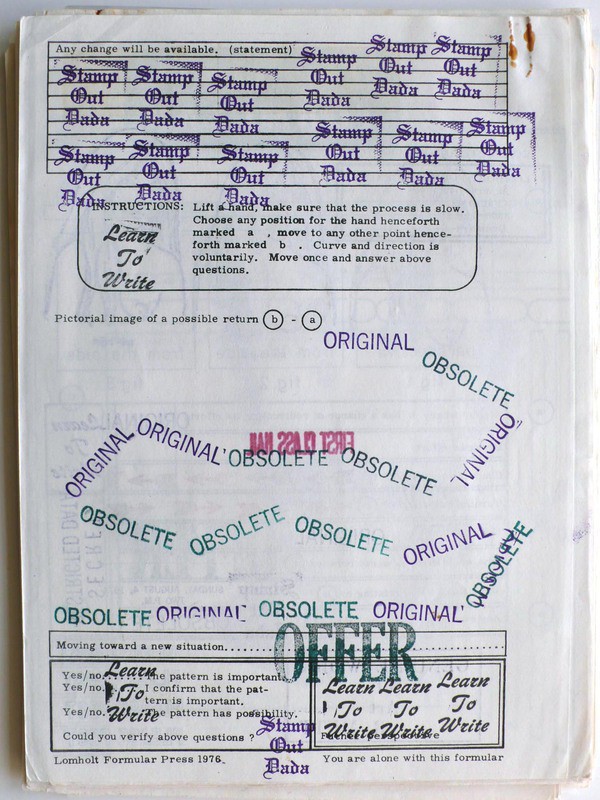 Any change will be available. (statement)
Stamp Out Dada
Stamp Out Dada
Stamp Out Dada
Stamp Out Dada
Stamp Out Dada
Stamp Out Dada
Stamp Out Dada
Stamp Out Dada
Stamp Out Dada
Stamp Out Dada
Stamp Out Dada
Stamp Out Dada
INSTRUCTIONS: Lift a hand, make sure that the process is slow.
Choose any position for the hand henceforth
marked a , move to any other point hence-
forth marked b . Curve and direction is
voluntarily. Move once and answer above
questions.
Learn
To
Write
Pictorial image of a possible return b - a
ORIGINAL
OBSOLETE
ORIGINAL
ORIGINAL
ORIGINAL
OBSOLETE
OBSOLETE
FIRST CLASS MAIL
OBSOLETE
OBSOLETE
OBSOLETE
ORIGINAL
OBSOLETE
OBSOLETE
ORIGINAL
OBSOLETE
ORIGINAL
OFFER
Moving toward a new situation
Yes/no. The pattern is important
Yes/no. I confirm that the pat-
tern is important.
Yes/no. The pattern has possibility.
Could you verify above questions ?
Learn
To
Write
Stamp
Out
Dada
Learn Learn Learn
To To To
Write Write Write
Lomholt Formular Press 1976.
You are alone with this formular